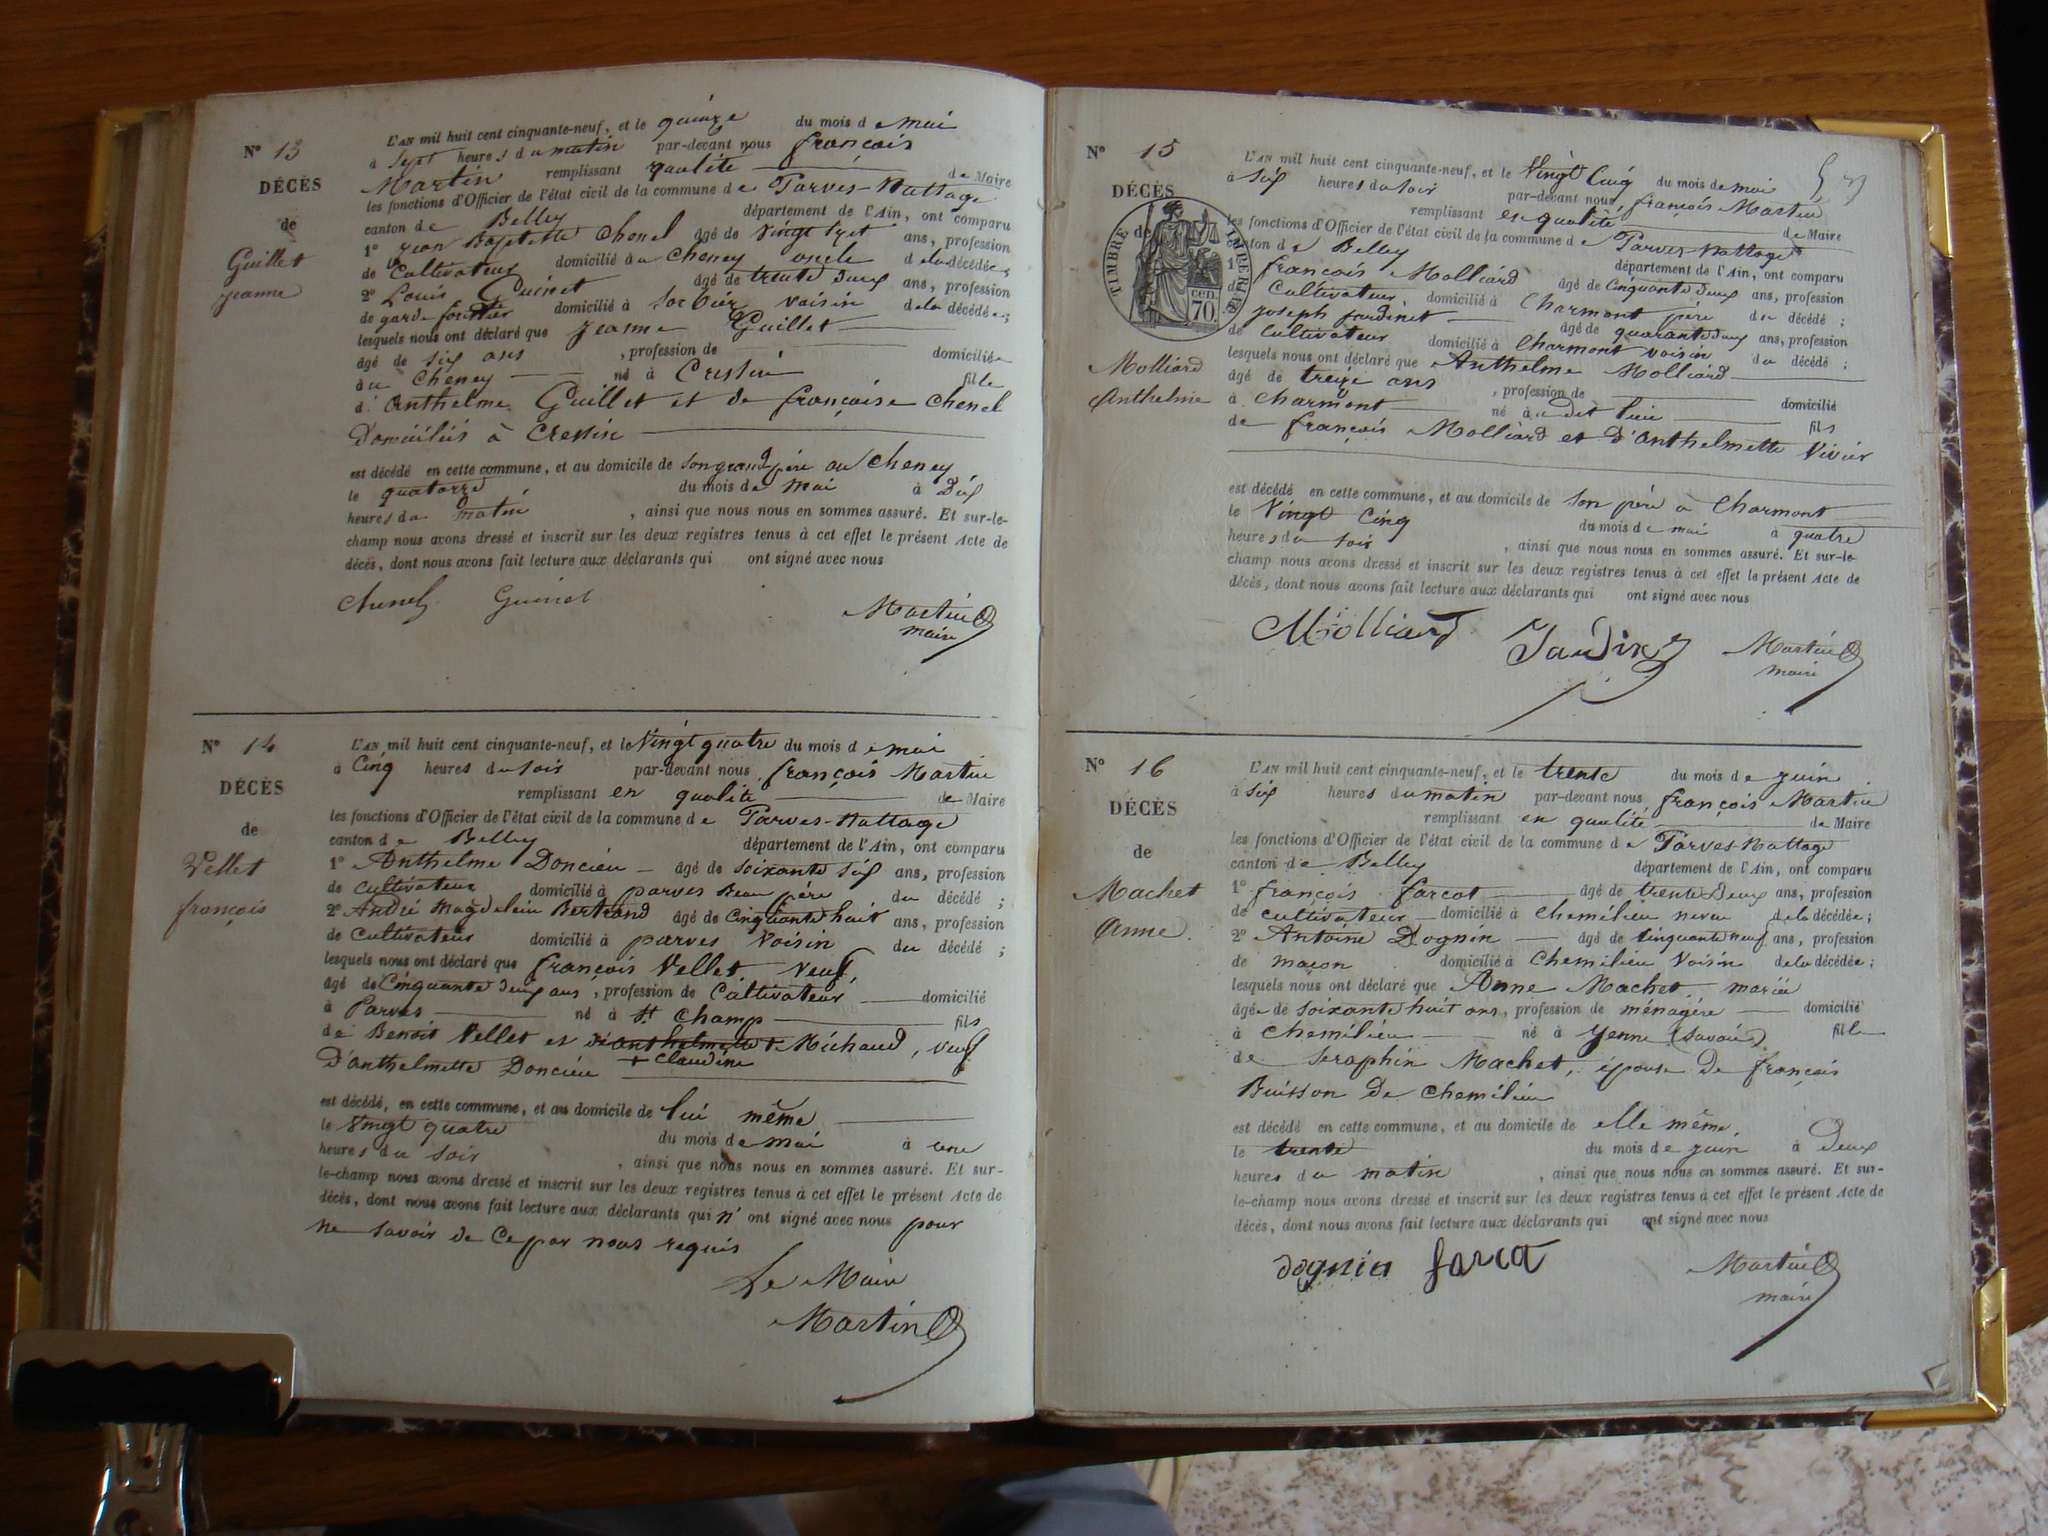 N° 13
DÉCÈS
de
Guillet
Jeanne
L'AN mil huit cent cinquante-neuf, et le quinze du mois de mai
à sept heures du matin par-devant nous françois
Martin remplissant qualité de Maire
les fonctions d'Officier de l'état civil de la commune de Parves-Nattage
canton de Belley département de l'Ain, ont comparu
1° jean Baptiste Chenel âgé de vingt sept ans, profession
de Cultivateur domicilié à au Cheney oncle de la décédée;
2° Louis Guinet âgé de trente deux ans, profession
de garde forestier domicilié à Sorbier voisin de la décédée;
lesquels nous ont déclaré que Jeanne Guillet
âgé de six ans, profession de domiciliée
à au Cheney né à Cressin fille
d'Anthelme Guillet et de françoise Chenel
Domiciliés à Cressin
est décédé en cette commune, et au domicile de son grand père au Cheney
le quatorze du mois de mai à Dix
heures du matin, ainsi que nous nous en sommes assuré. Et sur-le-
champ nous avons dressé et inscrit sur les deux registres tenus à cet effet le présent Acte de
décès, dont nous avons fait lecture aux déclarants qui ont signé avec nous
Chenel Guinet Martin
maire
N° 14
DÉCÈS
de
Vellet
françois
L'AN mil huit cent cinquante-neuf, et le Vingt quatre du mois de mai
à Cinq heures du soir par-devant nous françois Martin
remplissant en qualité de Maire
les fonctions d'Officier de l'état civil de la commune de Parves-Nattage
canton de Belley département de l'Ain, ont comparu
1° Anthelme Doncieu âgé de soixante six ans, profession
de cultivateur domicilié à parves Beau père du décédé;
2° André Magdelein Bertrand âgé de Cinquante huit ans, profession
de Cultivateur domicilié à parves Voisin du décédé;
lesquels nous ont déclaré que françois Vellet, veuf,
âgé de Cinquante deux ans, profession de Cultivateur domicilié
à Parves né à St Champ fils
de Benoit Vellet et d'anthelmette + Michaud, veuf
D'anthelmette Doncieu + Claudine
est décédé, en cette commune, et au domicile de lui même
le Vingt quatre du mois de mai à une
heures du soir, ainsi que nous nous en sommes assuré. Et sur-
le-champ nous avons dressé et inscrit sur les deux registres tenus à cet effet le présent Acte de
décès, dont nous avons fait lecture aux déclarants qui n'ont signé avec nous pour
ne savoir de ce par nous requis
Le Maire
Martin
N° 15
DÉCÈS
de
TIMBRE IMPÉRIAL
CEN. 70.
Molliard
Anthelme
L'AN mil huit cent cinquante-neuf, et le Vingt Cinq du mois de mai
à six heures du soir par-devant nous françois Martin
remplissant en qualité de Maire
les fonctions d'Officier de l'état civil de la commune de Parves-Nattage
canton de Belley département de l'Ain, ont comparu
1° françois Molliard âgé de Cinquante deux ans, profession
de Cultivateur domicilié à Charmont père du décédé;
joseph jardinet âgé de quarante deux ans, profession
de Cultivateur domicilié à Charmont voisin du décédé;
lesquels nous ont déclaré que Anthelme Molliard
âgé de treize ans, profession de domicilié
à Charmont né à u dit lieu fils
de françois Molliard et D'Anthelmette Vivier
est décédé en cette commune, et au domicile de son père à Charmont
le Vingt Cinq du mois de mai à quatre
heures du soir, ainsi que nous nous en sommes assuré. Et sur-le-
champ nous avons dressé et inscrit sur les deux registres tenus à cet effet le présent Acte de
décès, dont nous avons fait lecture aux déclarants qui ont signé avec nous
Molliard Martin
maire
N° 16
DÉCÈS
de
Machet
Anne.
L'AN mil huit cent cinquante-neuf, et le trente du mois de juin
à six heures du matin par-devant nous françois Martin
remplissant en qualité de Maire
les fonctions d'Officier de l'état civil de la commune de Parves-Nattage
canton de Belley département de l'Ain, ont comparu
1° françois farcot âgé de trente Deux ans, profession
de cultivateur domicilié à Chemilieu neveu de la décédée;
2° Antoine Dognin âgé de cinquante neuf ans, profession
de maçon domicilié à Chemilieu Voisin de la décédée;
lesquels nous ont déclaré que Anne Machet mariée
âgée de soixante huit ans, profession de ménagère domicilié
à Chemilieu né à Yenne (Savoie) fille
de Seraphin Machet, épouse de françois
Buisson de Chemilieu
est décédé en cette commune, et au domicile de elle même.
le trente du mois de juin à Deux
heures du matin, ainsi que nous nous en sommes assuré. Et sur-
le-champ nous avons dressé et inscrit sur les deux registres tenus à cet effet le présent Acte de
décès, dont nous avons fait lecture aux déclarants qui ont signé avec nous
dognin farco Martin
maire